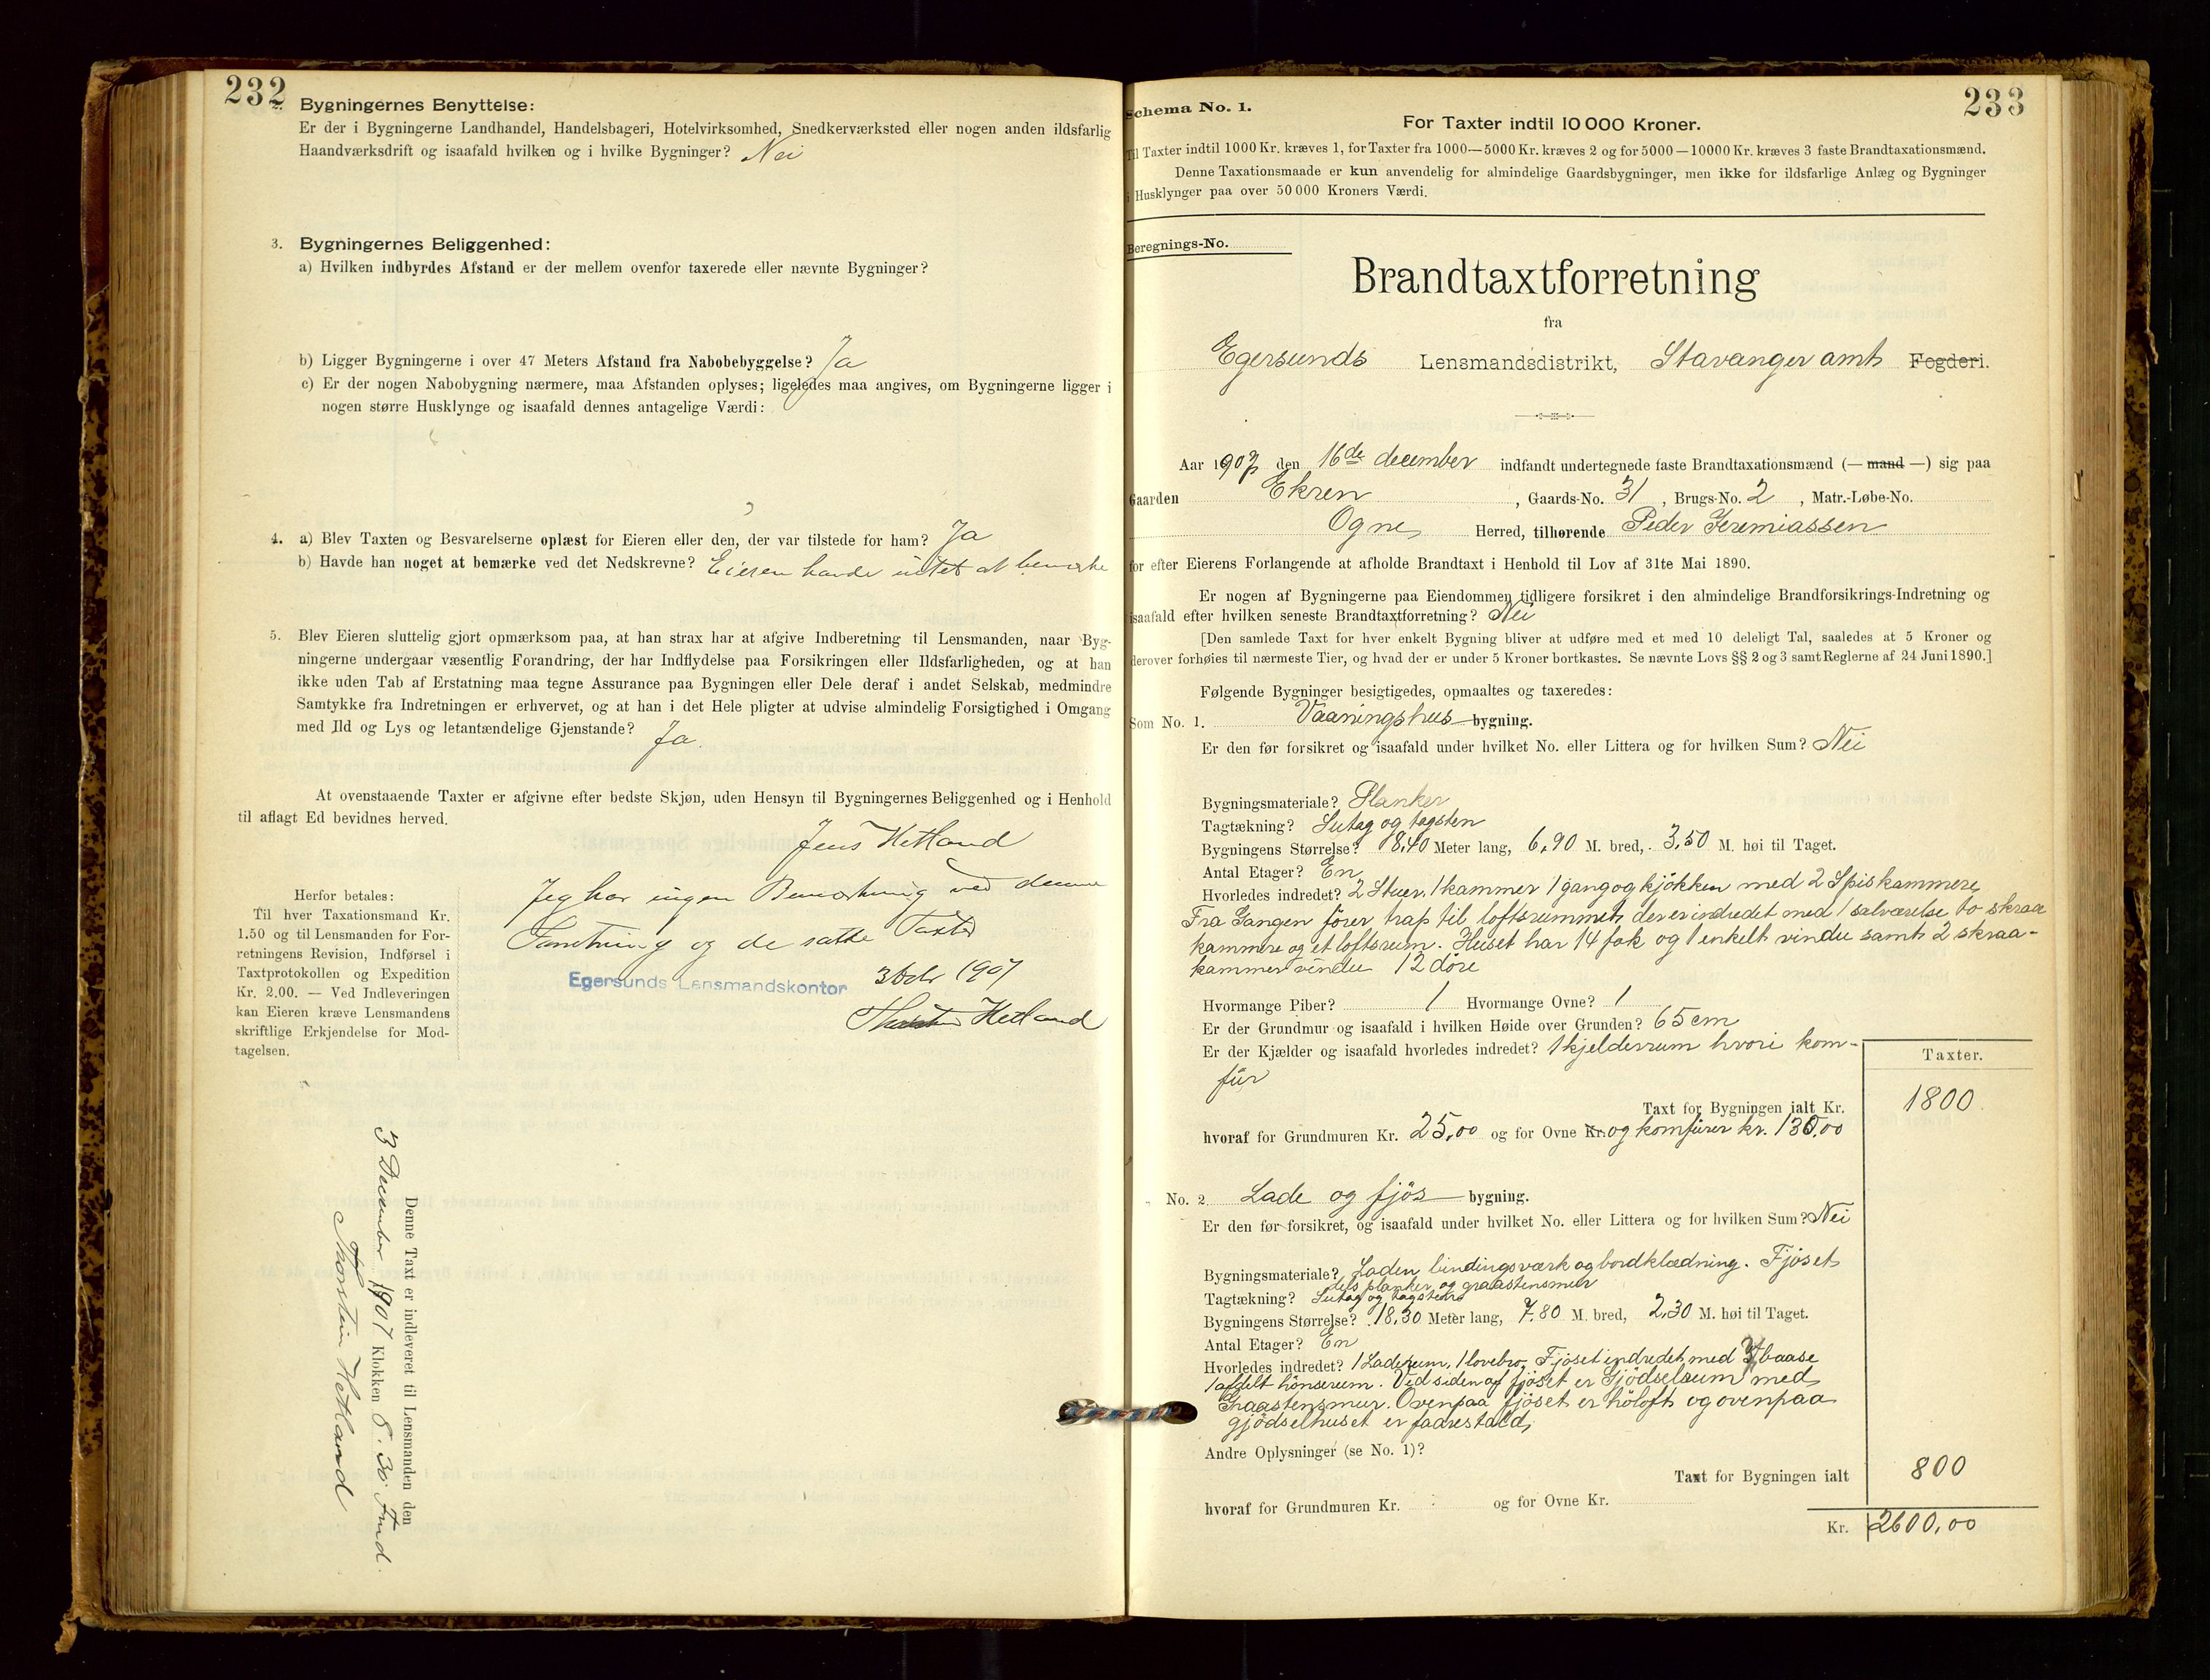 232
Bygningernes Benyttelse:
Er der i Bygningerne Landhandel, Handelsbageri, Hotelvirksomhed, Snedkerværksted eller nogen anden ildsfarlig
Haandværksdrift og isaafald hvilken og i hvilke Bygninger? Nei
3. Bygningernes Beliggenhed:
a) Hvilken indbyrdes Afstand er der mellem ovenfor taxerede eller nævnte Bygninger?
b) Ligger Bygningerne i over 47 Meters Afstand fra Nabobebyggelse? Ja
c) Er der nogen Nabobygning nærmere, maa Afstanden oplyses; ligeledes maa angives, om Bygningerne ligger i
nogen større Husklynge og isaafald dennes antagelige Værdi:
4. a) Blev Taxten og Besvarelserne oplæst for Eieren eller den, der var tilstede for ham? Ja
b) Havde han noget at bemærke ved det Nedskrevne? Eieren havde intet at bemærke
5. Blev Eieren sluttelig gjort opmærksom paa, at han strax har at afgive Indberetning til Lensmanden, naar Byg-
ningerne undergaar væsentlig Forandring, der har Indflydelse paa Forsikringen eller Ildsfarligheden, og at han
ikke uden Tab af Erstatning maa tegne Assurance paa Bygningen eller Dele deraf i andet Selskab, medmindre
Samtykke fra Indretningen er erhvervet, og at han i det Hele pligter at udvise almindelig Forsigtighed i Omgang
med Ild og Lys og letantændelige Gjenstande? Ja
At ovenstaaende Taxter er afgivne efter bedste Skjøn, uden Hensyn til Bygningernes Beliggenhed og i Henhold
til aflagt Ed bevidnes herved.
Jens Hetland
Jeg har ingen Bemærkning ved denne
og de satte Taxter
Egersunds Lensmandskontor 3 1907
Hetland
Herfor betales:
Til hver Taxationsmand Kr.
1.50 og til Lensmanden for For-
retningens Revision, Indførsel i
Taxtprotokollen og Expedition
Kr. 2.00. — Ved Indleveringen
kan Eieren kræve Lensmandens
skriftlige Erkjendelse for Mod-
tagelsen.
Denne Taxt er indleveret til Lensmanden den
3 December 1907 Klokken 8.30 Fmd.
Thorstein Hetland
233
Schema No. 1.
For Taxter indtil 10 000 Kroner.
Til Taxter indtil 1000 Kr. kræves 1, for Taxter fra 1000—5000 Kr. kræves 2 og for 5000—10000 Kr. kræves 3 faste Brandtaxationsmænd.
Denne Taxationsmaade er kun anvendelig for almindelige Gaardsbygninger, men ikke for ildsfarlige Anlæg og Bygninger
i Husklynger paa over 50 000 Kroners Værdi.
Beregnings-No.
Brandtaxtforretning
fra
Egersunds Lensmandsdistrikt, Stavanger amt Fogderi.
Aar 1907 den 16de december indfandt undertegnede faste Brandtaxationsmænd (— mand —) sig paa
Gaarden Ekren, Gaards-No. 31, Brugs-No. 2, Matr.-Løbe-No.
Ogne Herred, tilhørende Peder Jeremiassen
for efter Eierens Forlangende at afholde Brandtaxt i Henhold til Lov af 31te Mai 1890.
Er nogen af Bygningerne paa Eiendommen tidligere forsikret i den almindelige Brandforsikrings-Indretning og
isaafald efter hvilken seneste Brandtaxtforretning? Nei
[Den samlede Taxt for hver enkelt Bygning bliver at udføre med et med 10 deleligt Tal, saaledes at 5 Kroner og
derover forhøies til nærmeste Tier, og hvad der er under 5 Kroner bortkastes. Se nævnte Lovs §§ 2 og 3 samt Reglerne af 24 Juni 1890.]
Følgende Bygninger besigtigedes, opmaaltes og taxeredes:
Som No. 1. Vaaningshus bygning.
Er den før forsikret og isaafald under hvilket No. eller Littera og for hvilken Sum? Nei
Bygningsmateriale? Planker
Tagtækning? Sutag og tagsten
Bygningens Størrelse? 8,40 Meter lang, 6,90 M. bred, 3,50 M. høi til Taget.
Antal Etager? En
Hvorledes indredet? 2 Stuer, 1 kammer 1 gang og kjøkken med 2 Spiskammere
Fra Gangen fører trap til loftsrummet, der er indredet med 1 salværelse to skraa
kammere og et loftsrum. Huset har 14 fak og 1 enkelt vindu samt 2 skraa-
kammer vindu 12 døre
Hvormange Piber? 1 Hvormange Ovne? 1
Er der Grundmur og isaafald i hvilken Høide over Grunden? 65 cm
Er der Kjælder og isaafald hvorledes indredet? 1 kjelderrum hvori kom-
fur
Taxter.
Taxt for Bygningen ialt Kr. 1800
hvoraf for Grundmuren Kr. 25,00 og for Ovne Kr. og komfürer kr. 130,00
No. 2 Lade og fjøs bygning.
Er den før forsikret, og isaafald under hvilket No. eller Littera og for hvilken Sum? Nei
Bygningsmateriale? Laden bindingsværk og bordklædning. Fjøset
dels planker og graastensmur
Tagtækning? Sutag og tagsten
Bygningens Størrelse? 18,30 Meter lang, 7,80 M. bred, 2,30 M. høi til Taget.
Antal Etager? En
Hvorledes indredet? 1 Laderum, 1 lovebro. Fjøset indredet med baase
1 afdelt hønserum. Ved siden af fjøset er Gjødselrum med
Graastensmur. Ovenpaa fjøset er høloft og ovenpaa
gjødselhuset er faarestald,
Andre Oplysninger (se No. 1)?
Taxt for Bygningen ialt 800
hvoraf for Grundmuren Kr. og for Ovne Kr.
Kr. 2600,00